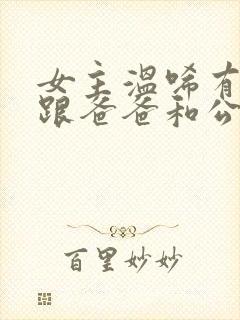 女主温唏有
跟爸爸和公
百里妙妙